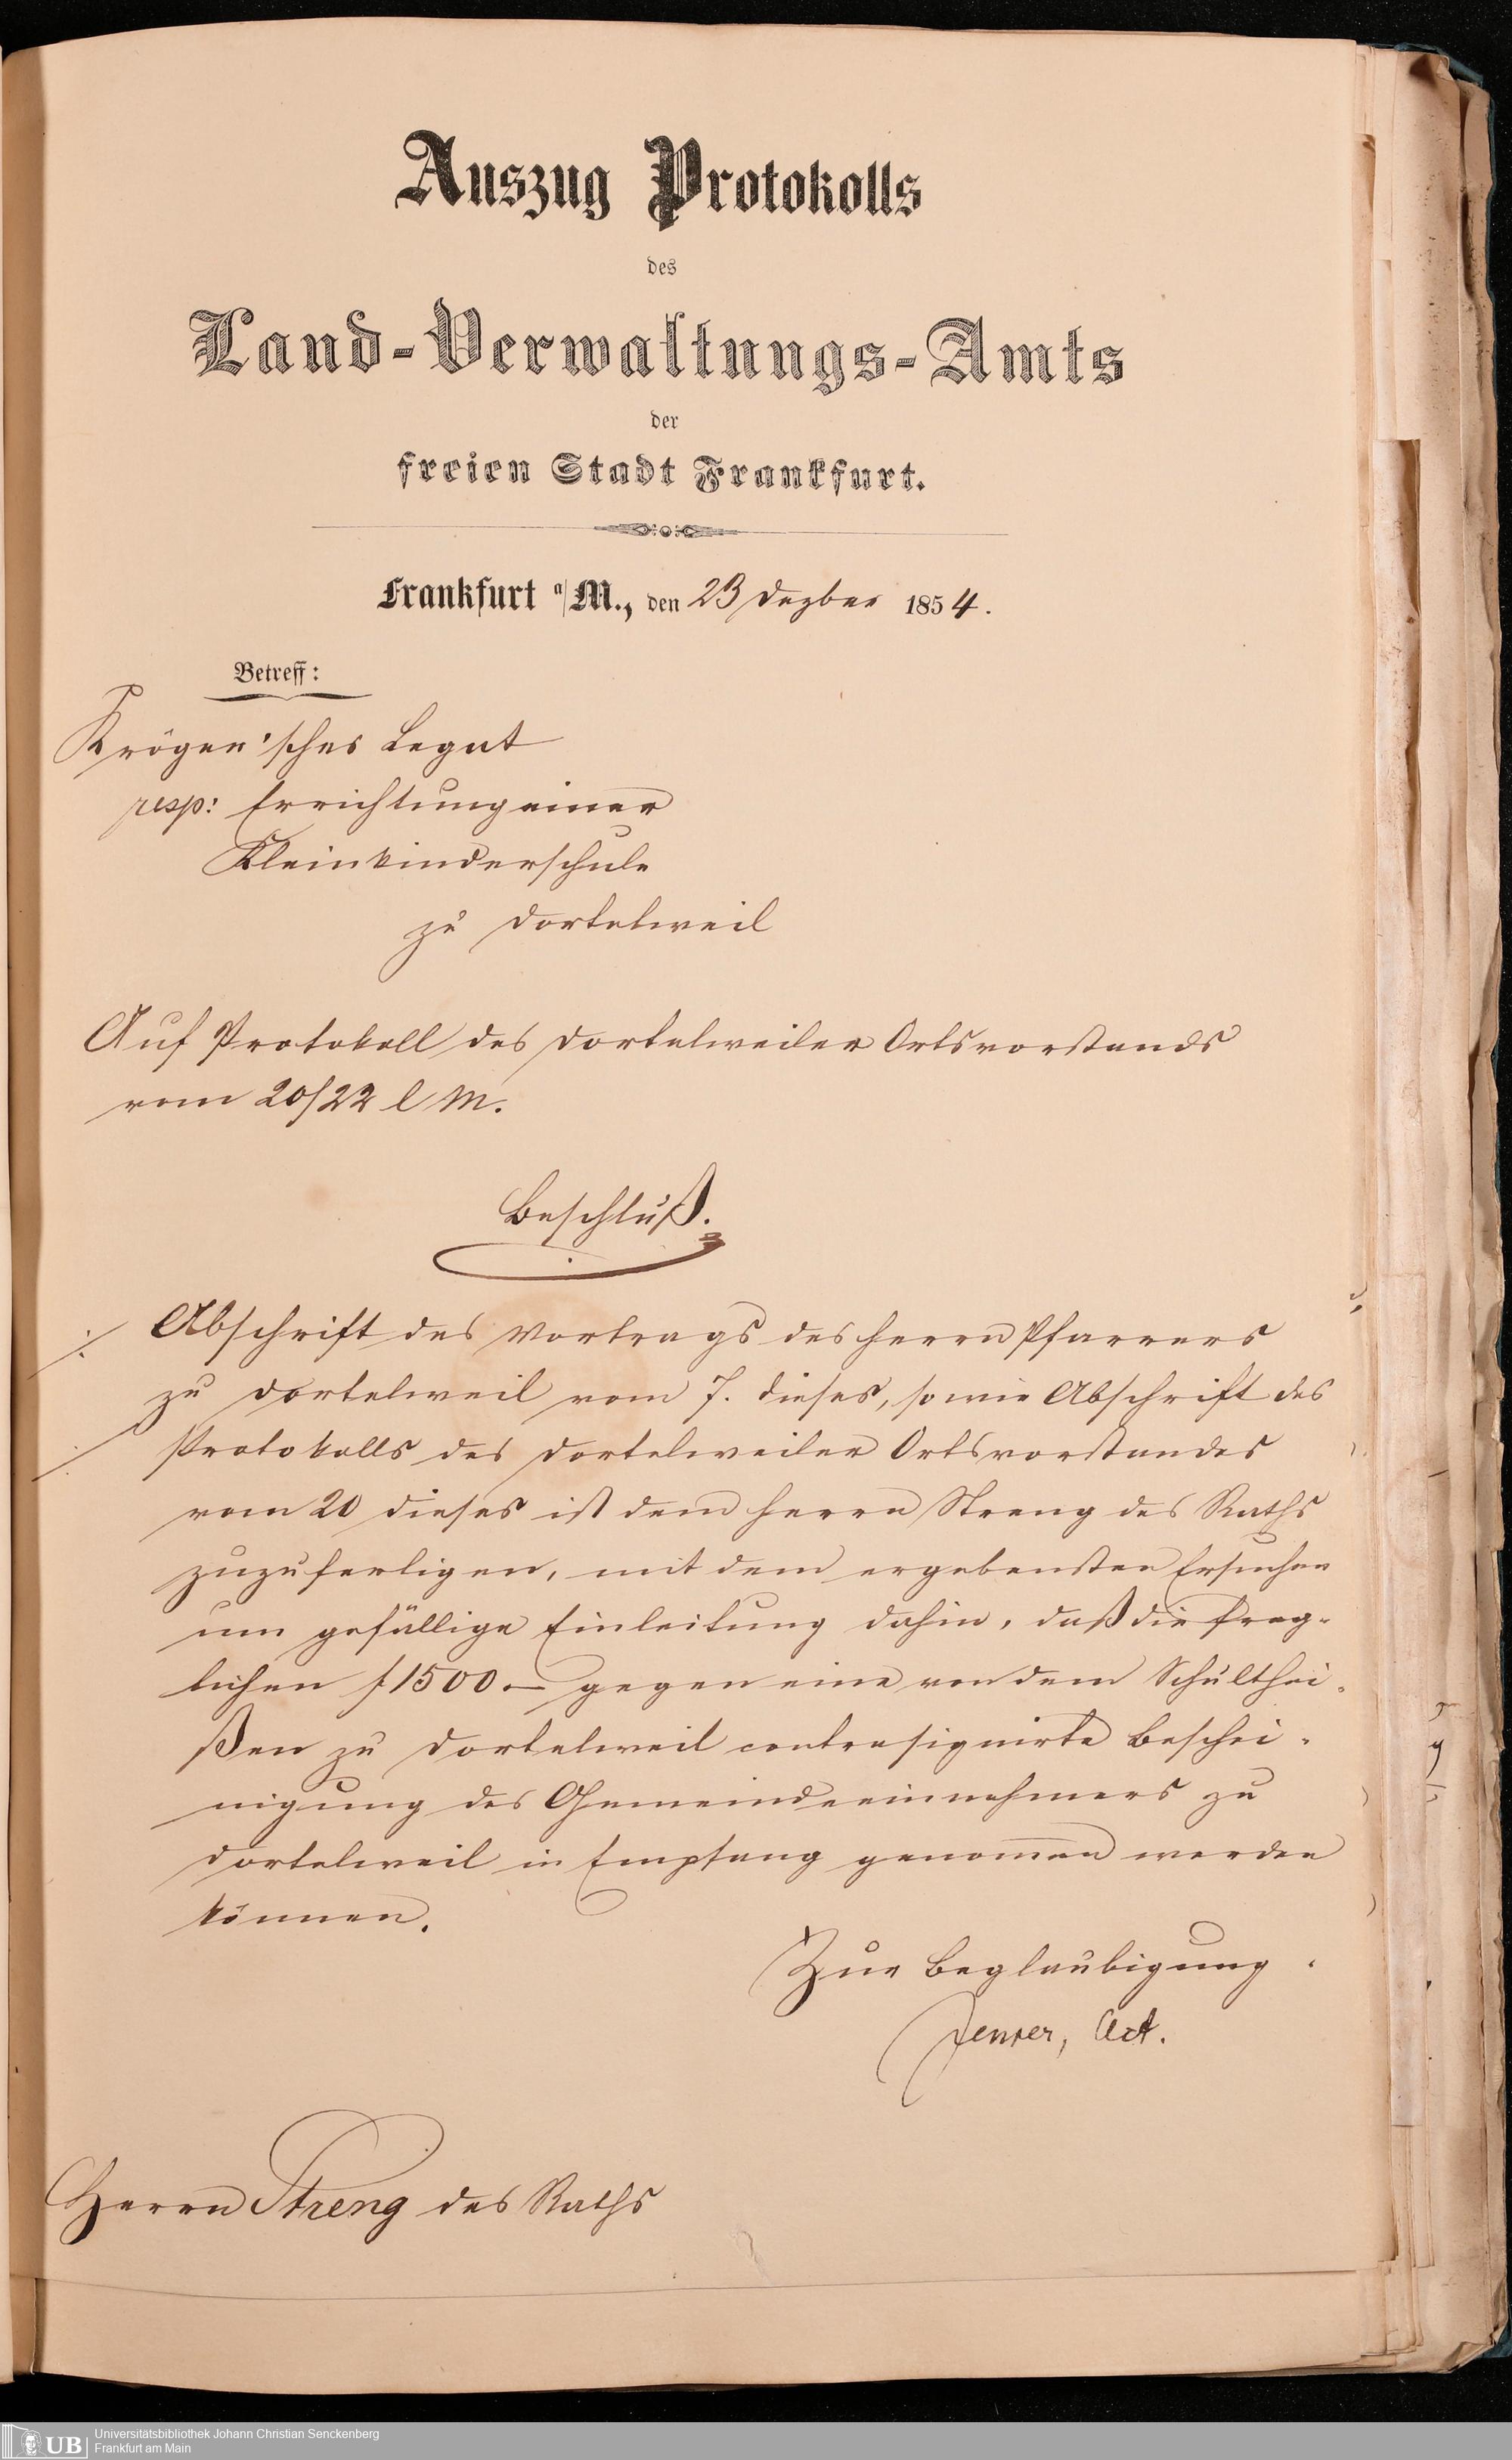 Auszug Protokolls
des
Land-Verwaltungs-Amts
der
freien Stadt Frankfurt.
Frankfurt a/M., den 23 Dezber 1854.
Betreff:
Kröger'sches Legat
resp: Errichtung einer
Kleinkinderschule
zu Dortelweil
Auf Protokoll des Dortelweiler Ortsvorstands
vom 20/22 l M.
Beschluß.
./. Abschrift des Vortrags des Herrn Pfarrers
zu Dortelweil vom 7. dieses, sowie Abschrift des
./. Protokolls des Dortelweiler Ortsvorstandes
vom 20 dieses ist dem Herrn Streng des Raths
zuzufertigen, mit dem ergebensten Ersuchen
um gefällige Einleitung dahin, daß die frag-
lichen f 1500.— gegen eine von dem Schulthei-
ßen zu Dortelweil contrasignirte Beschei-
nigung des Gemeindeeinnehmers zu
Dortelweil in Empfang genommen werden
können.
Zur Beglaubigung.
Act.
Herrn Streng des Raths
UB
Universitätsbibliothek Johann Christian Senckenberg
Frankfurt am Main